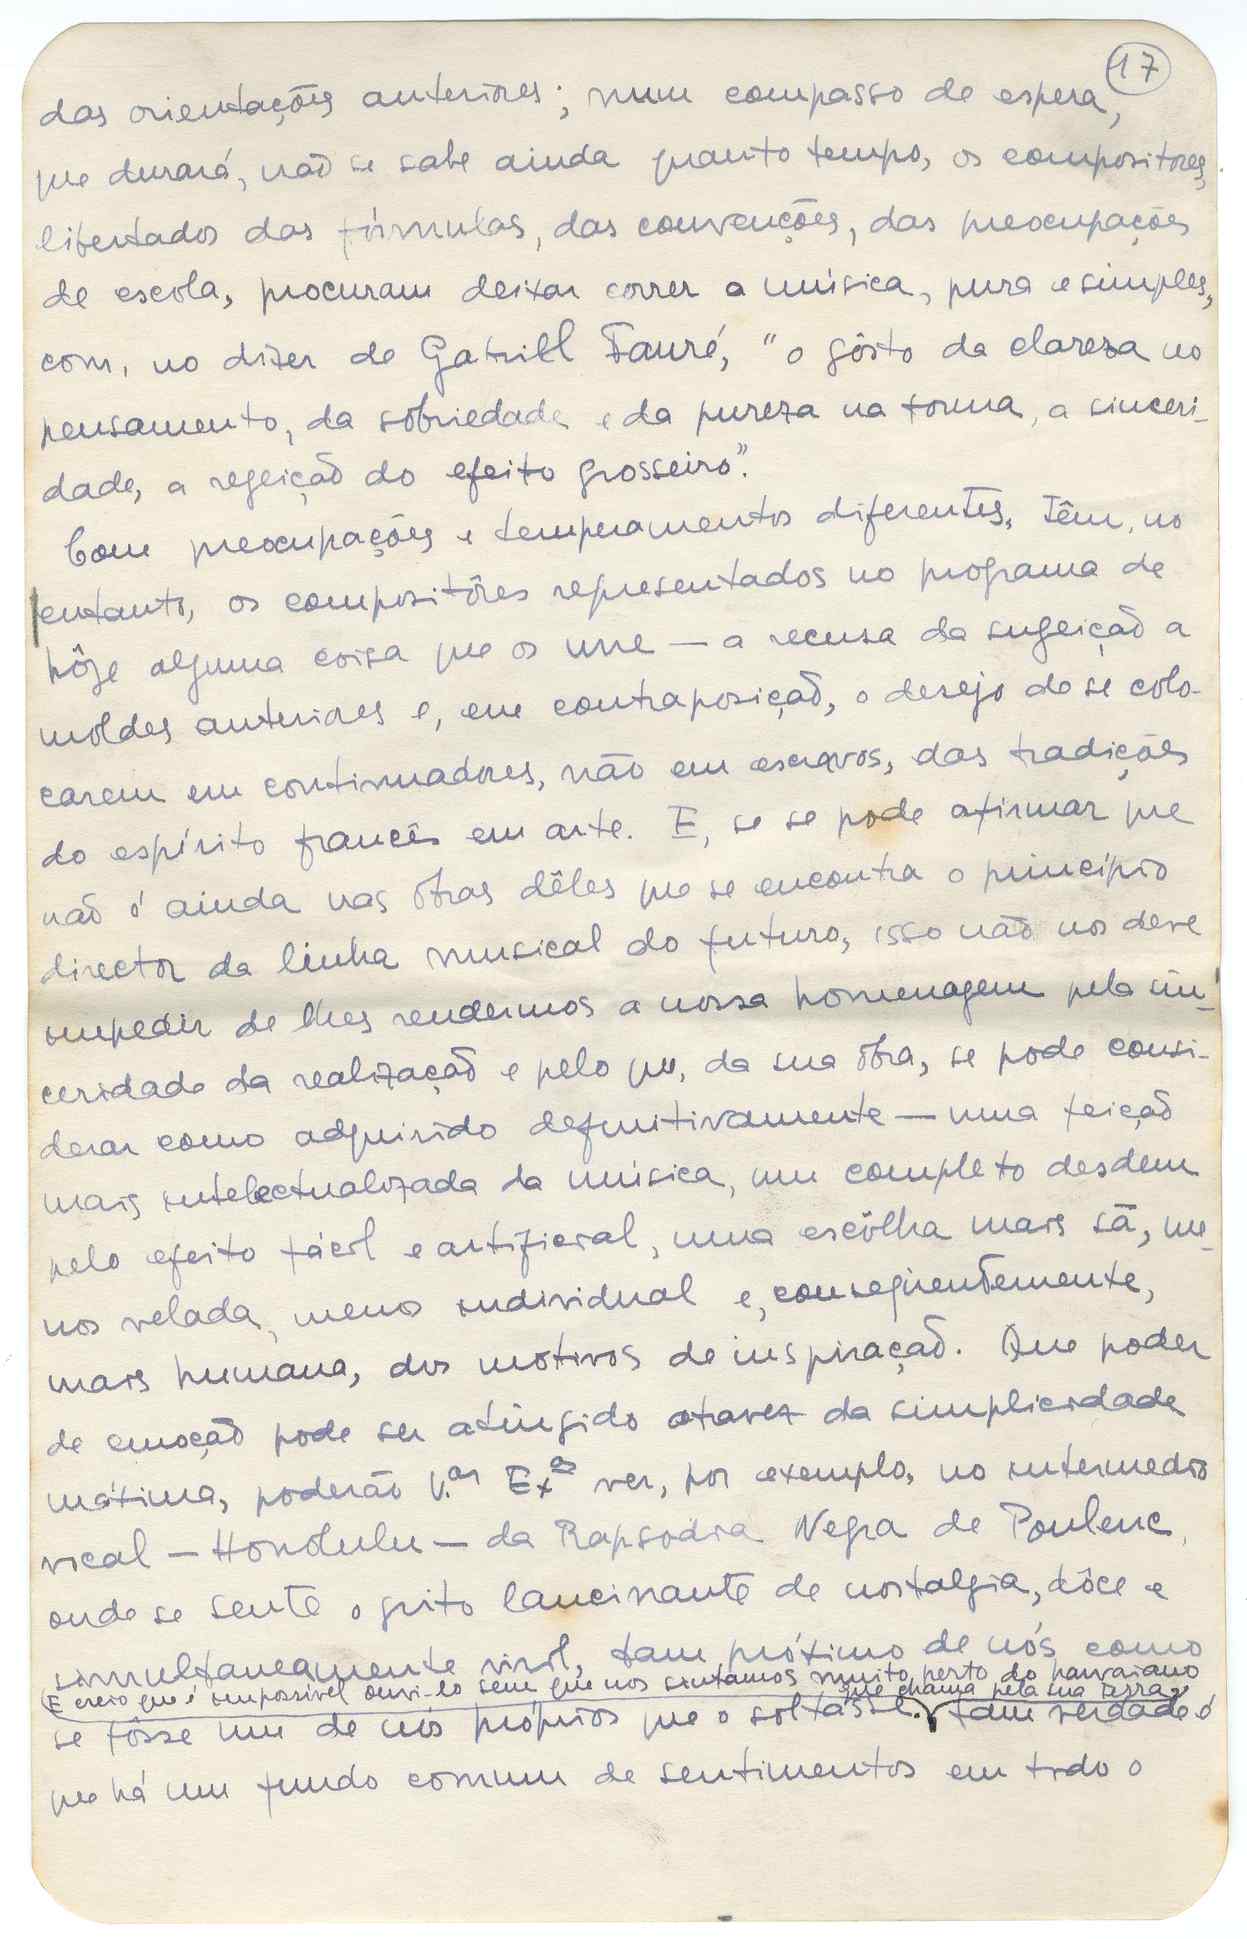 17
das orientações anteriores; num compasso de espera,
que durará, não se sabe ainda quanto tempo, os compositores,
libertados das fórmulas, das convenções, das preocupações
de escola, procuram deixar correr a música, pura e simples,
com, no dizer de Gabriel Fauré, "o gôsto da clareza no
pensamento, da sobriedade e da pureza na forma, a sinceri-
dade, a regeição do efeito grosseiro".
Com preocupações e temperamentos diferentes, têm, no
entanto, os compositôres representados no programa de
hôje alguma coisa que os une — a recusa da sugeição a
moldes anteriores e, em contraposição, o desejo de se colo-
carem em continuadores, não em escravos, das tradições
do espírito francês em arte. E, se se pode afirmar que
não é ainda nas obras dêles que se encontra o princípio
director da linha musical do futuro, isso não nos deve
impedir de lhes rendermos a nossa homenagem pela sin-
ceridade da realização e pelo que, da sua obra, se pode consi-
derar como adquirido definitivamente — uma feição
mais intelectualizada da música, um completo desdem
pelo efeito fácil e artificial, uma escôlha mais sã, me-
nos velada, menos individual e, conseqüentemente,
mais humana, dos motivos de inspiração. Que poder
de emoção pode ser atingido atravez da simplicidade
máxima, poderão V.as Ex.as ver, por exemplo, no intermedio
vical — Honolulu — da Rapsodia Negra de Poulenc,
onde se sente o grito lancinante de nostalgia, dôce e
simultaneamente viril, tam próximo de nós como
(E creio que é impossível ouvi-lo sem que nos sintamos muito perto do hawaiano
que chama pela sua terra,
se fôsse um de nós próprios que o soltasse. tam verdade é
que há um fundo comum de sentimentos em todo o